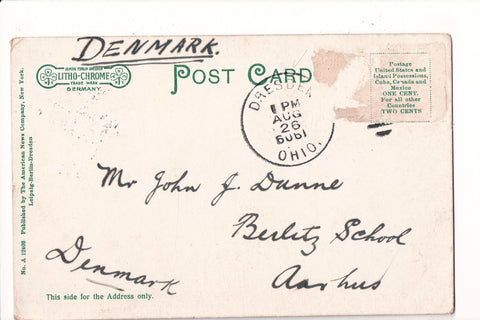 DENMARK.
LITHO-CHROME
TRADE MARK
GERMANY.
POST CARD
Postage
United States and
Island Possessions,
Cuba, Canada and
Mexico
ONE CENT.
For all other
Countries
TWO CENTS
DRESDEN
1 PM
AUG
26
OHIO.
Mr John J. Dunne
Berlitz School
Denmark
Aarhus
This side for the Address only.
No. A 12936 Published by The American News Company, New York.
Leipzig-Berlin-Dresden